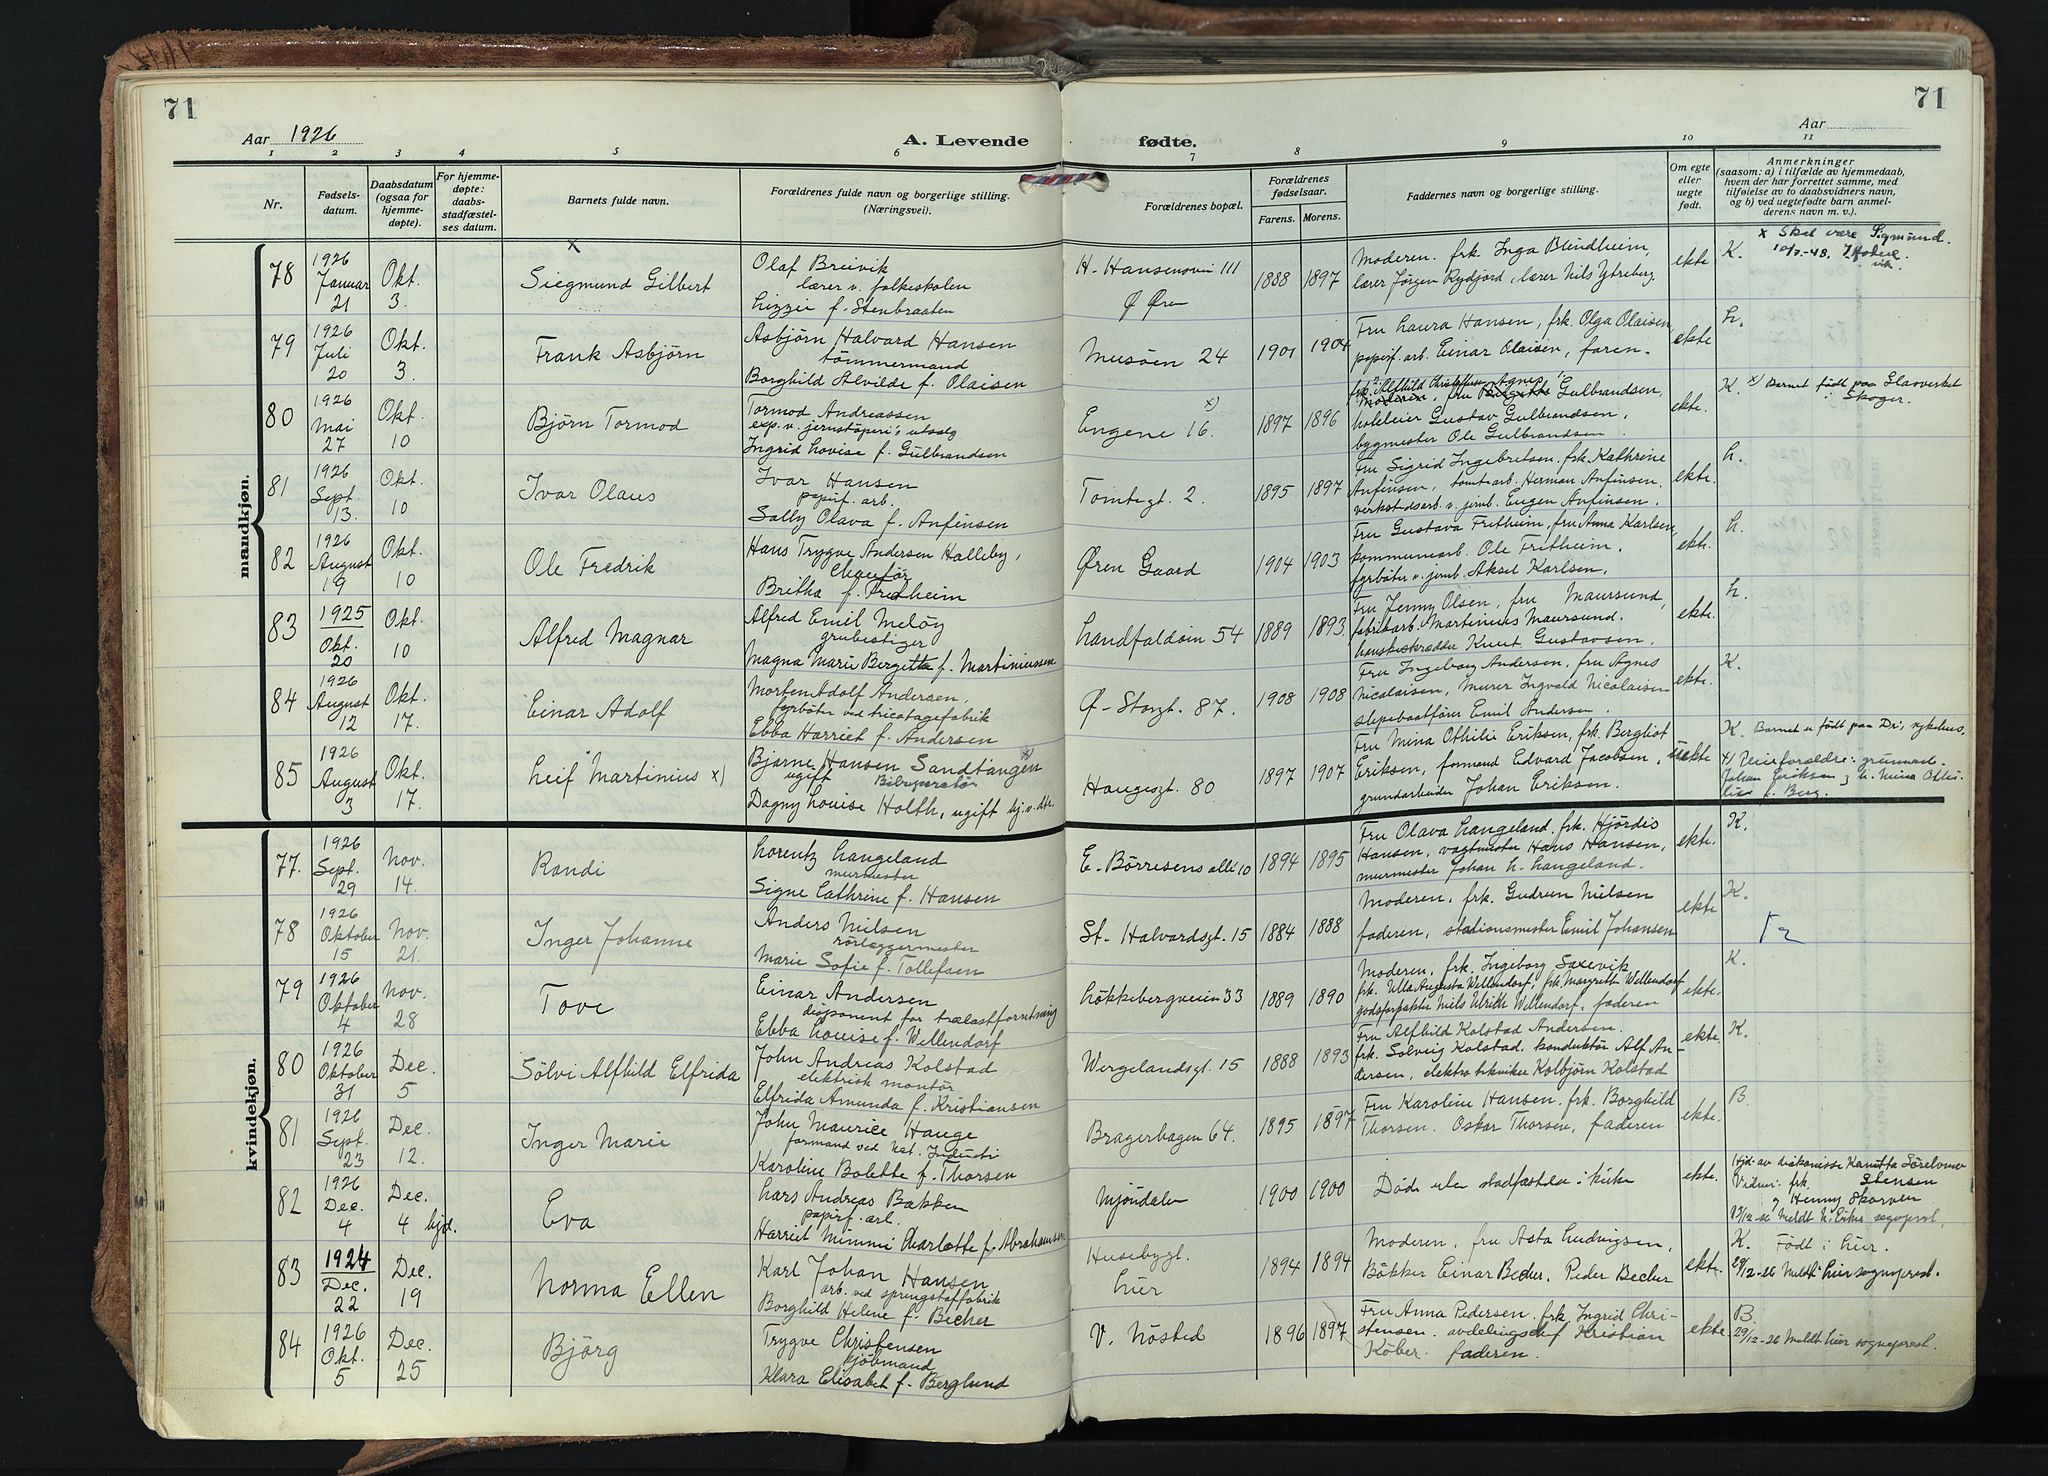 71
71
Aar 1926
A. Levende fødte.
Aar
1 2 3 4 5 6 7 8 9 10 11
Nr.
Fødsels-
datum.
Daabsdatum
(ogsaa for
hjemme-
døpte).
For hjemme-
døpte:
daabs-
stadfæstel-
ses datum.
Barnets fulde navn.
Forældrenes fulde navn og borgerlige stilling.
(Næringsvei).
Forældrenes bopæl.
Forældrenes
fødselsaar.
Farens. Morens.
Faddernes navn og borgerlige stilling.
Om egte
eller
uegte
født.
Anmerkninger
(saasom: a) i tilfælde av hjemmedaab,
hvem der har forrettet samme, med
tilføielse av to daabsvidners navn,
og b) ved uegtefødte barn anmel-
derens navn m. v.).
mandkjøn.
78
1926
Januar
21
Okt.
3.
x
Siegmund Gilbert
Olaf Breivik
lærer v. folkeskolen
Lizzie f. Stenbraaten
H. Hansensvei 111
Ø Øren
1888 1897
Moderen. frk. Inga Blindheim,
lærer Jørgen Rydjord, lærer Nils Ytreberg.
ekte
K.
x Skal være Sigmund.
10/7-48.
79
1926
Juli
20
Okt.
3.
Frank Asbjörn
Asbjörn Halvard Hansen
tömmermand
Borghild Alvilde f. Olaisen
Musöen 24
1901 1904
Fru Laura Hansen, frk. Olga Olaisen,
papirf. arb. Einar Olaisen, faren.
ekte
L.
80
1926
Mai
27
Okt.
10
Björn Tormod
Tormod Andreassen
exp. v. jernstöperi's utsalg
Ingrid Lovise f. Gulbrandsen
x)
Engene 16.
1897 1896
Agnes Gulbrandsen,
hoteleier Gustav Gulbrandsen,
bygmester Ole Gulbrandsen
ekte.
K. x) Barnet födt paa Glasverket
i Skoger.
81
1926
Sept.
13.
Okt.
10
Ivar Olaus
Ivar Hansen
papirf. arb.
Sally Olava f. Anfinsen
Tomtegt. 2.
1895 1897
Fru Sigrid Ingebretsen, frk. Kathrine
Anfinsen, tomtearb. Herman Anfinsen.
verkstedsarb. v. jernb. Eugen Anfinsen.
ekte.
L.
82
1926
August
19
Okt.
10
Ole Fredrik
Hans Trygve Andersen Halleby,
Chauför
Britha f. Fredheim
Øren Gaard
1904 1903
Fru Gustava Fritheim, fru Anna Karlsen,
kommunearb. Ole Fritheim.
fyrböter v. jernb. Aksel Karlsen.
ekte.
L.
83
1925
Okt.
20
Okt.
10
Alfred Magnar
Alfred Emil Melöy
grubestiger
Magna Marie Bergette f. Martiniussen
Landfaldöen 54
1889 1893.
Fru Jenny Olsen, fru Maursund,
fabrikarb. Martinius Maursund.
hanskeskrædder Knut Gustavsen.
ekte.
L.
84
1926
August
12
Okt.
17.
Einar Adolf
Morten Adolf Andersen,
fyrböter ved tricotagefabrik
Ebba Harriet f. Andersen
Ø-Storgt. 87.
1908 1908
Fru Ingeborg Andersen, fru Agnes
Nicolaisen, Murer Ingvald Nicolaisen
slepebaatförer Emil Andersen.
ekte.
K.
85
1926
August
3
Okt.
17.
Leif Martinius x)
Bjarne Hansen Sandtangen x)
ugift
Dagny Louise Holth, ugift tj. v. dtr.
Haugesgt. 80
1897 1907
Fru Mina Othilie Eriksen, frk. Bergliot
Eriksen, formand Edvard Jacobsen,
grundarbeider Johan Eriksen.
uekte
K. Barnet er födt paa Dr. sykehus.
x) Pleieforældre:
Johan Eriksen og h. Mina Othi-
lie f. Berg.
kvindekjøn.
77.
1926
Sept.
29
Nov.
14.
Randi
Lorentz Langeland
murmester
Signe Cathrine f. Hansen
E. Börresens allé 10
1894 1895
Fru Olava Langeland, frk. Hjördis
Hansen, vagtmester Hans Hansen,
murmester Johan L. Langeland.
ekte.
K.
78
1926
Oktober
15
Nov.
21.
Inger Johanne
Anders Nilsen
rörlæggermester
Marie Sofie f. Tollefsen
St. Halvardsgt. 15
1884 1888
Moderen, frk. Gudrun Nilsen
faderen, stadionsmester Emil Johansen
ekte
K.
79
1926
Oktober
4
Nov.
28
Tove
Einar Andersen
disponent for trælastforretning
Ebba Louise f. Wellendorf
Lökkebergveien 33
1889 1890
Moderen, frk. Ingeborg Saxevik
frk. Ulla Augusta Wellendorf, frk. Margrethe Wellendorf
godsforpakter Niels Ulrich Wellendorf, faderen
ekte.
K.
80
1926
Oktober
31
Dec.
5
Sölvi Alfhild Elfrida
John Andreas Kolstad
elektrisk montör
Elfrida Amunda f. Kristiansen
Wergelandsgt. 15
1888 1893
Fru Alfhild Kolstad Andersen.
frk. Solveig Kolstad, konduktör Alf An-
dersen, elektrotekniker Kolbjörn Kolstad
ekte.
K.
81
1926
Sept.
23
Dec.
12.
Inger Marie
John Maurice Hauge
formand ved Nat. Industri
Karoline Bolette f. Thorsen
Bragerhagen 64.
1895 1897
Fru Karoline Hansen. frk. Borghild
Thorsen. Oskar Thorsen, faderen
ekte.
B.
82
1926
Dec.
4
Dec.
4 hjd.
Eva
Lars Andreas Bakken
papirf. arb.
Harriet Mimmi Charlotte f. Abrahamsen
Mjöndalen
1900 1900
Död uten stadfæstelse i kirke
ekte.
Hjd. av diakonisse
Vidner: frk. Stensen
Henny Skarven
13/12-26 Meldt N. Eiker sogneprest.
83
1924
Dec.
22
Dec.
19
Norma Ellen
Karl Johan Hansen
arb. ved sprengstoffabrik
Borghild Helene f. Becher
Husebygt.
Lier
1894 1894
Moderen, fru Asta Ludvigsen,
Bökker Einar Becher, Peder Becher
ekte.
K. Födt i Lier.
29/12-26 Meldt Lier sogneprest.
84
1926
Okt.
5
Dec.
25
Björg
Trygve Christensen
kjöbmand
Klara Elisabet f. Berglund
V. Nösted
1896 1897
Fru Anna Pedersen. frk. Ingrid Chri-
stensen. avdelingschef Kristian
Köber. faderen.
ekte
B.
29/12-26 Meldt Lier sogneprest.